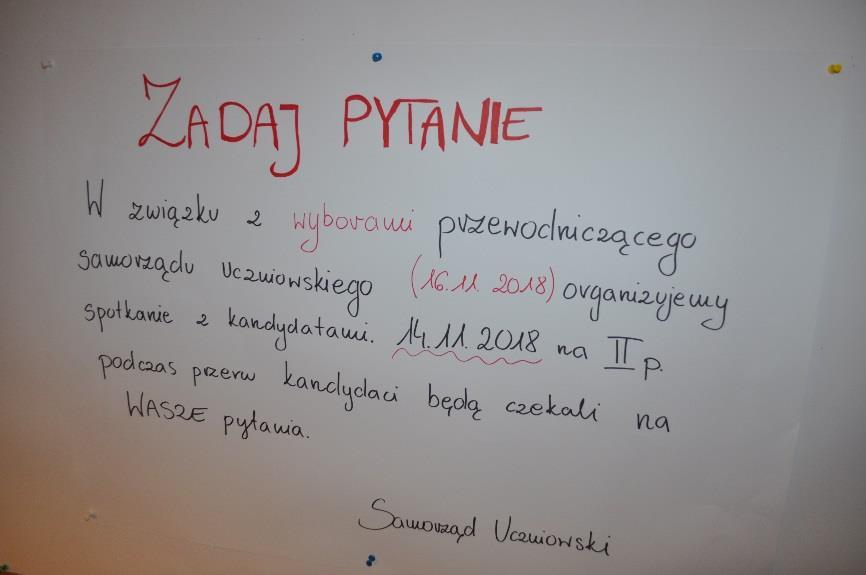 ZADAJ PYTANIE
W związku z wyborami przewodniczącego
samorządu Uczniowskiego (16.11. 2018) organizujemy
spotkanie z kandydatami. 14.11.2018 na II p.
podczas przerw kandydaci będą czekali na
WASZE pytania.
Samorząd Uczniowski